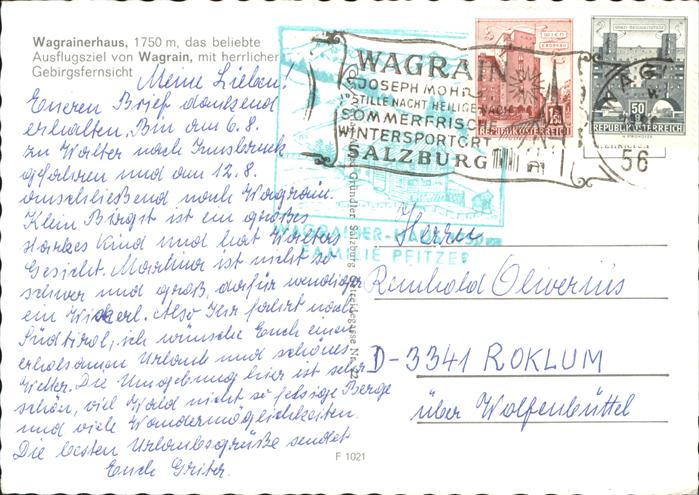 Wagrainerhaus, 1750 m, das beliebte
Ausflugsziel von Wagrain, mit herrlicher
Gebirgsfernsicht
Meine Lieben!
Eueren Brief dankend
erhalten. Bin am 6.8.
zu Walter nach Innsbruck
gefahren und am 12.8.
anschließend nach Wagrain.
Klein Birgit ist ein großes
starkes Kind und hat Walters
Gesicht. Martina ist nicht so
schwer und groß, dafür wendiger
ein Wickerl. Also Ihr fahrt nach
Südtirol, ich wünsche Euch einen
erholsamen Urlaub und schönes
Wetter. Die Umgebung hier ist sehr
schön, viel Wald nicht so felsige Berge
und viele Wandermöglichkeiten.
Die besten Urlaubsgrüße sendet
Euch
F 1021
Gründler Salzburg
WAGRAIN
JOSEPH MOHR
STILLE NACHT HEILIGE NACHT
SOMMERFRISCHE
WINTERSPORTORT
SALZBURG
WIEN
ERDBERG
REPUBLIK ÖSTERREICH
50
REPUBLIK ÖSTERREICH
WAG
56
WAGRAINER-HAUS
FAMILIE PFITZER
Herrn
Reinhold Oliverius
D-3341 ROKLUM
über Wolfenbüttel